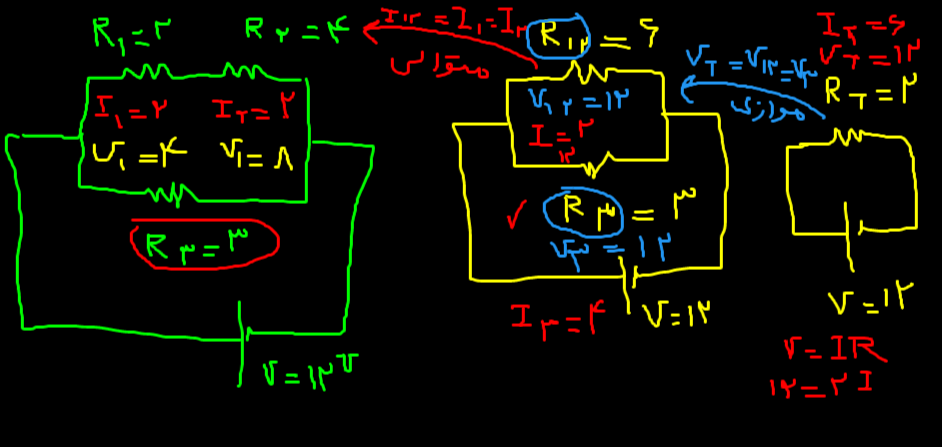 R₁=۲
R۲=۴
I₁=۲
I۲=۲
V₁=۴
V₁=۸
R۳=۳
V=۱۲V
I۱۲=I₁=I۲
متوالی
R۱۲=۶
V۱۲=۱۲
I۱۲=۲
R۳=۳
V۳=۱۲
I۳=۴
V=۱۲
V_T=V۱۲=V۳
موازی
I_T=۶
V_T=۱۲
R_T=۲
V=۱۲
V=IR
۱۲=۲I